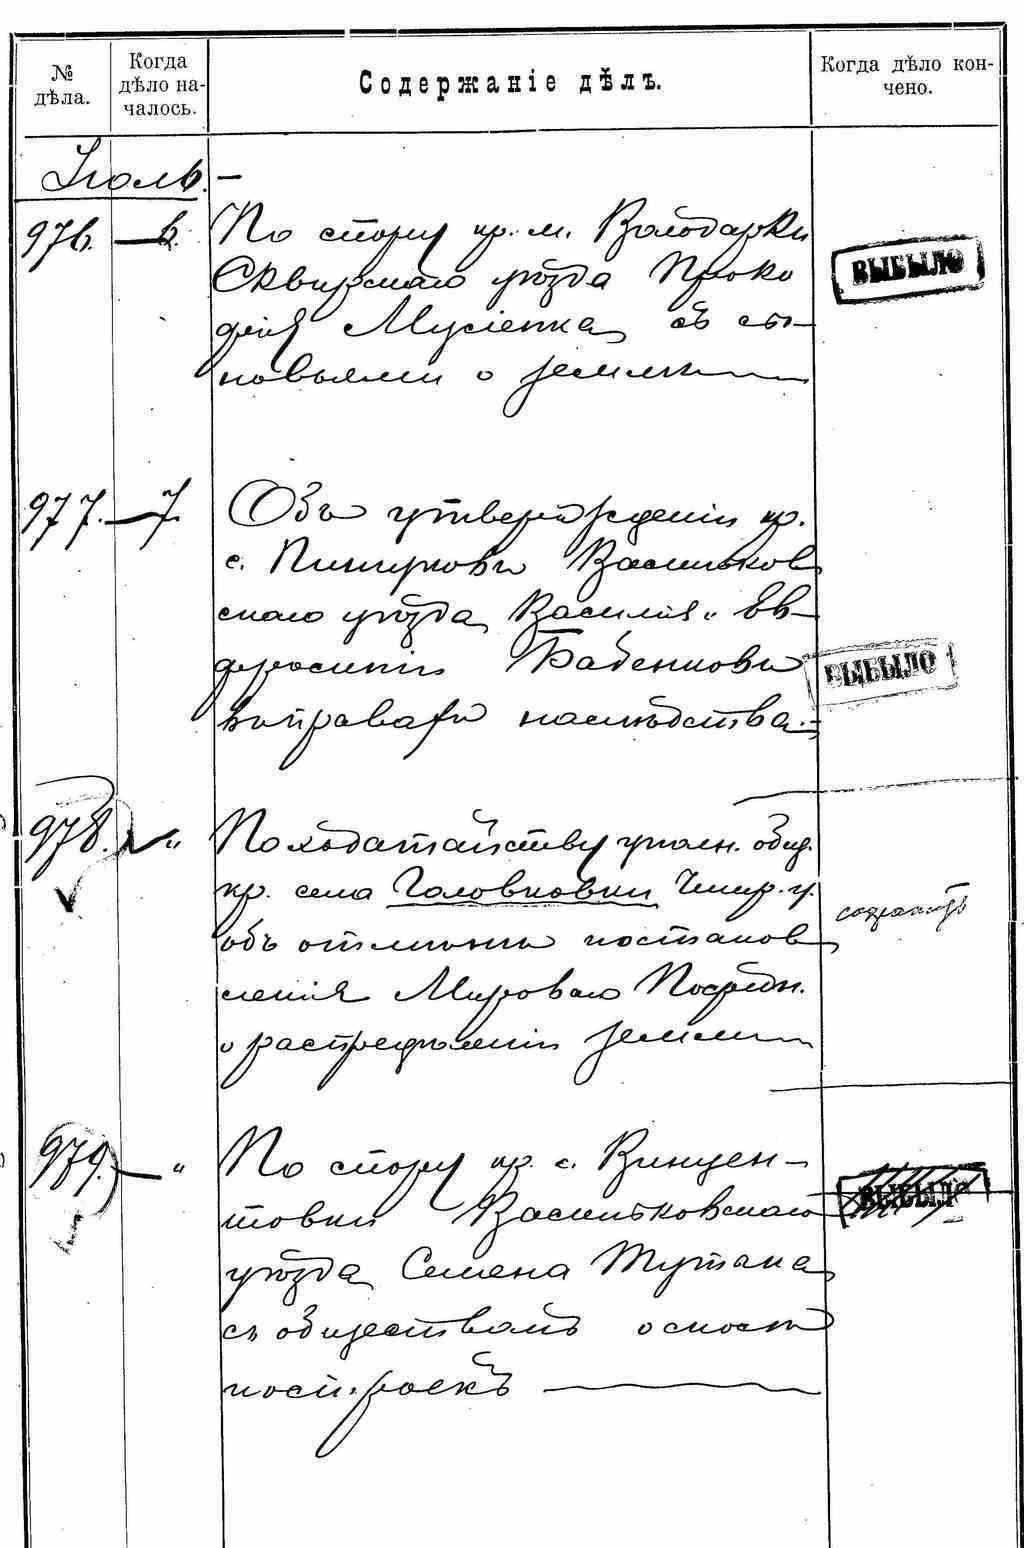 № дѣла.
Когда дѣло началось.
Содержаніе дѣлъ.
Когда дѣло кончено.
Іюль. –
976. — 6. По спору кр. м. Володарки
Сквирскаго уѣзда Проко
фія Мусіенка съ сы-
новьями о землѣ
ВЫБЫЛО
977. — 7. Объ утвержденіи кр.
с. Василько
скаго уѣзда Василія и Ев-
фросиніи Бабенковы
въ правахъ наслѣдства. –
ВЫБЫЛО
978. — " По ходатайству уполн. общ.
кр. села Головковки Чигир. у.
объ отмѣнѣ постанов
ленія Мироваго Посредн.
о распредѣленіи земли
979. — " По спору кр. с. Винцен-
товки Васильковскаго
уѣзда Семена Тутака
съ обществомъ о сносѣ
построекъ
ВЫБЫЛО